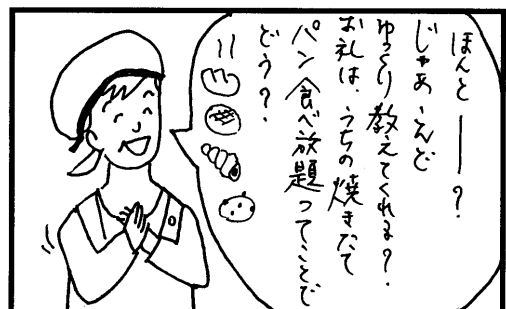 ほんとー？
じゃあこんど
ゆっくり教えてくれる？
お礼は、うちの焼きたて
パン食べ放題ってことで
どう？